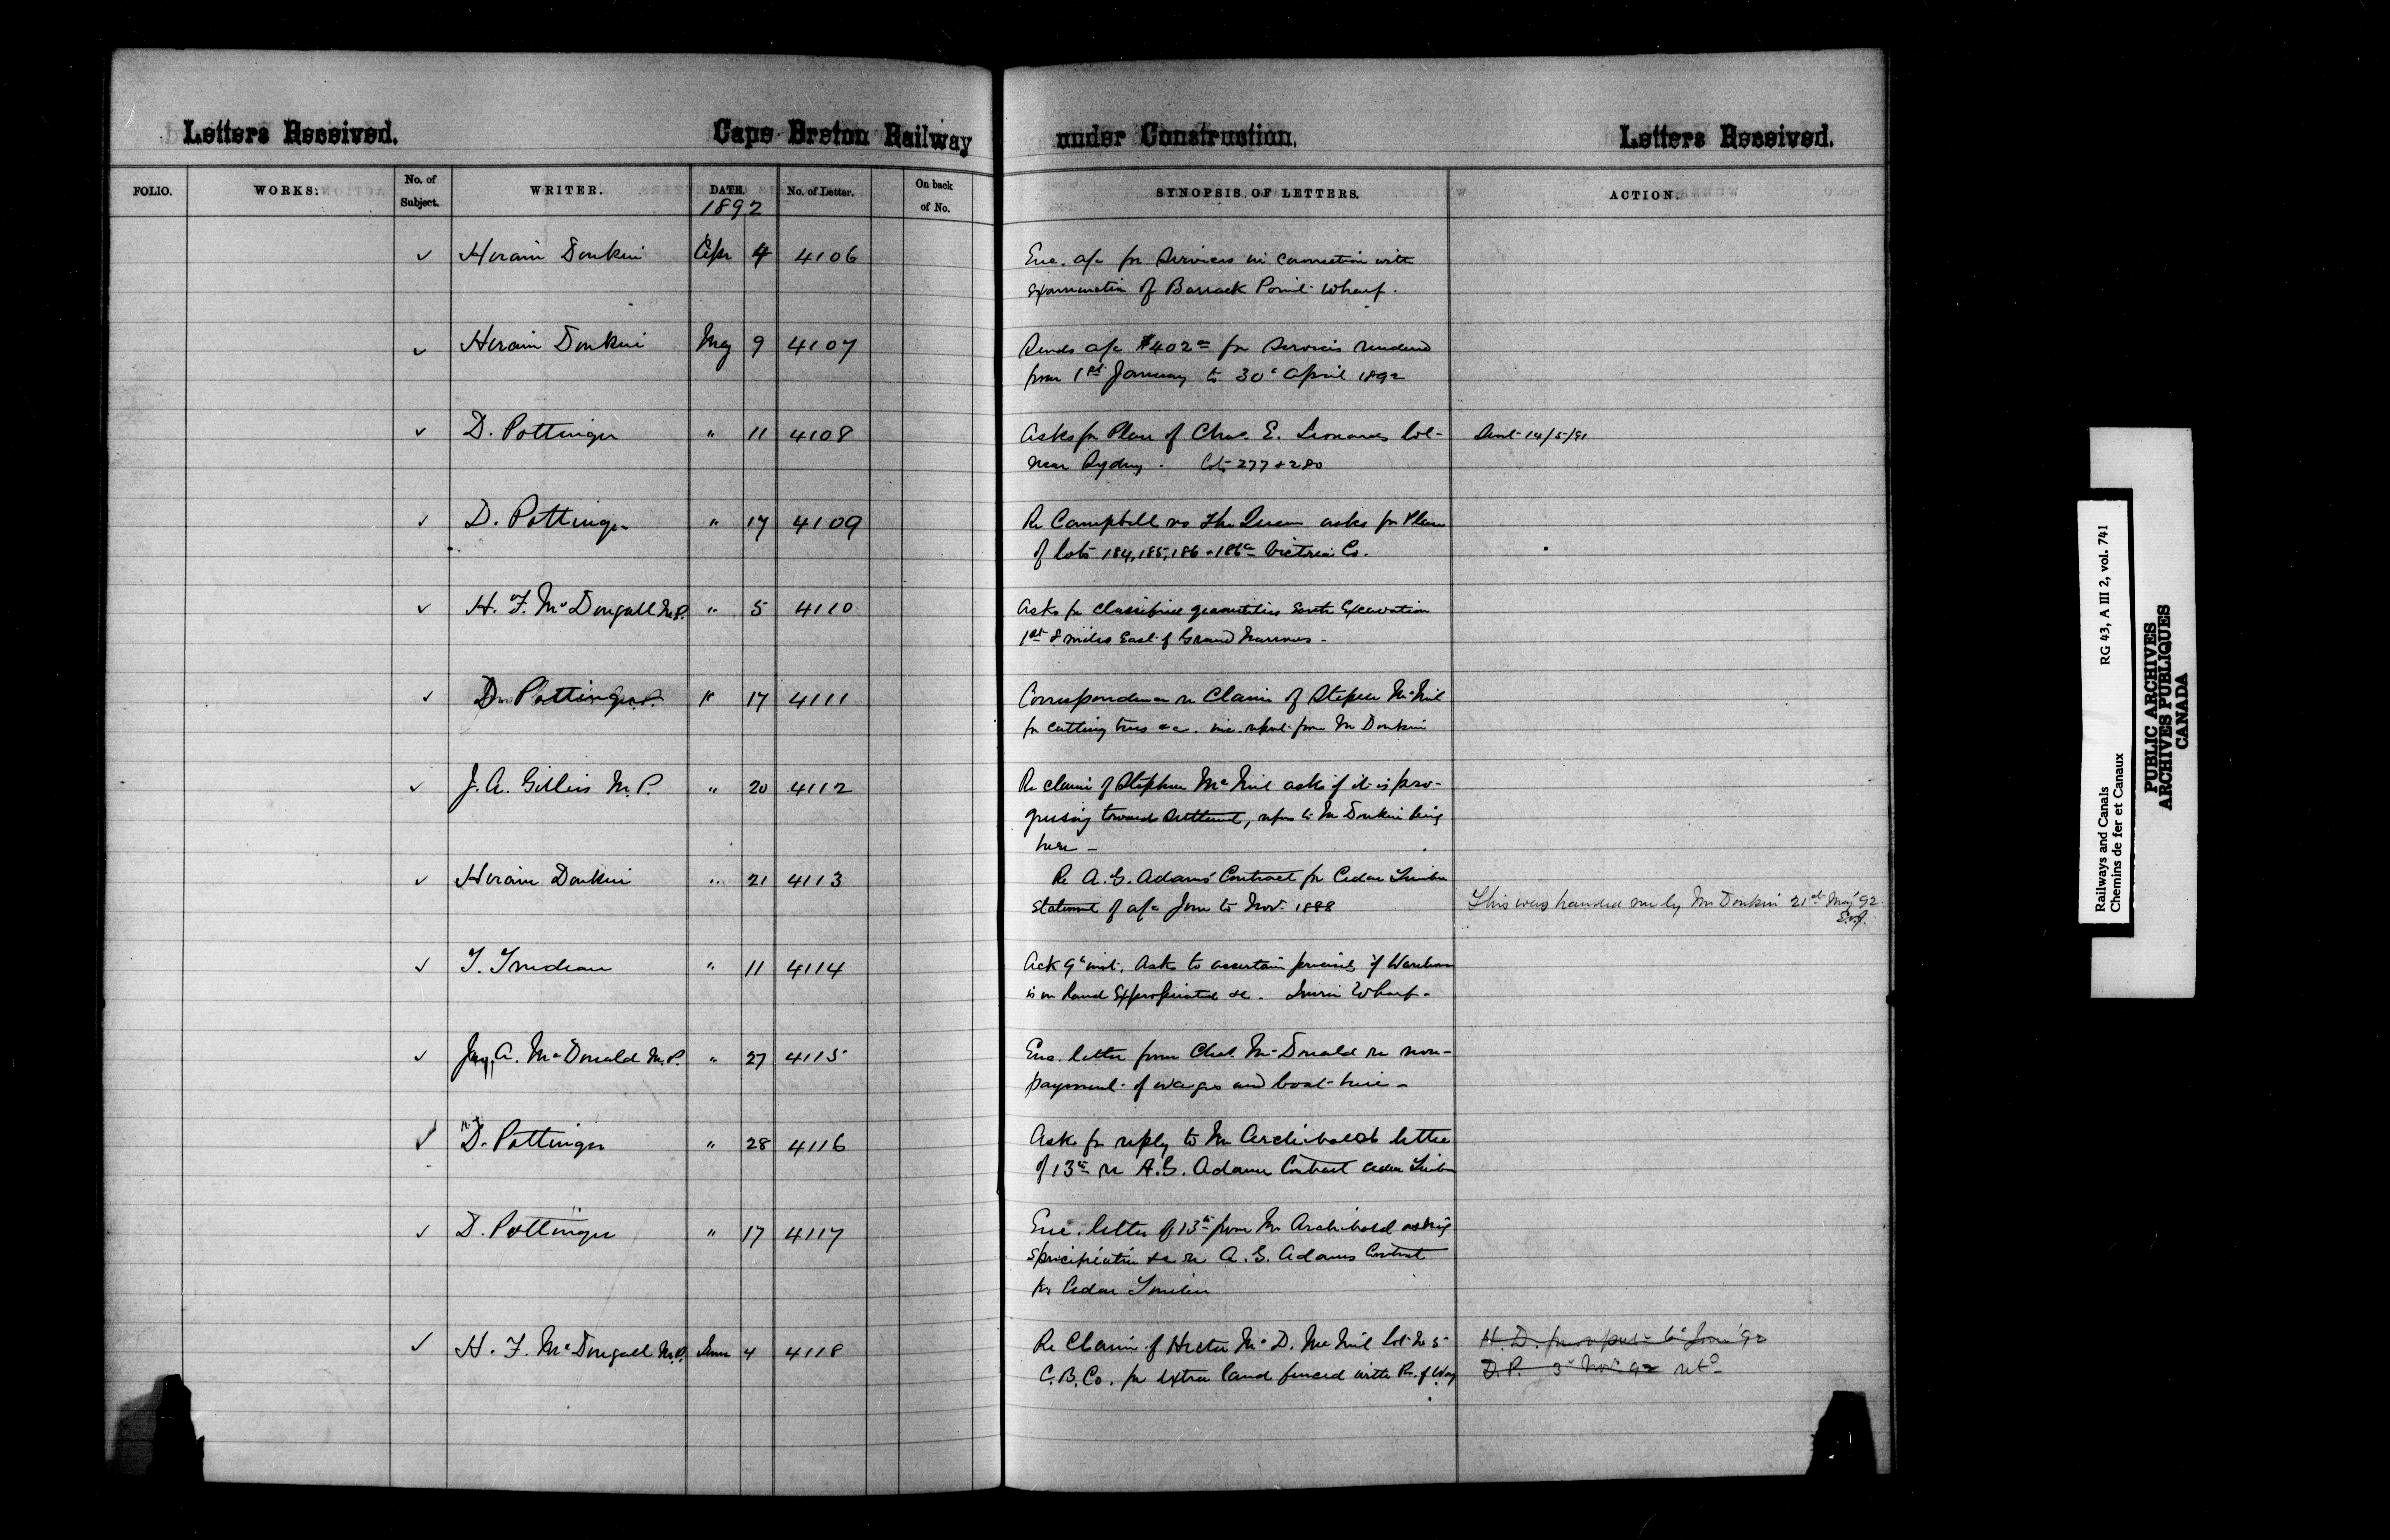 Letters Received. Cape Breton Railway under Construction. Letters Received.
FOLIO. WORKS. No. of Subject. WRITER. DATE. No. of Letter. On back of No. SYNOPSIS OF LETTERS. ACTION.
1892
✓ Hiram Donkin Apr 4 4106 Enc. a/c for Services in connection with
examination of Barrack Point Wharf.
✓ Hiram Donkin May 9 4107 Sends a/c $402 00 for Services rendered
from 1st January to 30th April 1892
✓ D. Pottinger " 11 4108 Asks for Plan of Chas. E. Leonards lot Sent 14/5/91
near Sydney. Lots 277 & 280
✓ D. Pottinger " 17 4109 Re Campbell vs The Queen asks for Plan
of lots 184, 185, 186 & 186a Victria Co.
✓ H. F. McDougall M.P. " 5 4110 Asks for Classified quantities Earth Excavation
1st 8 miles East of Grand Narrows -
✓ D. Pottinger " 17 4111 Correspondence re Claim of Stephen McNeil
for cutting trees &c. inc. report from Mr Donkin
✓ J. A. Gillies M.P. " 20 4112 Re claim of Stephen McNeil asks if it is pro-
gressing towards Settlement, refers to Mr Donkin being
here -
✓ Hiram Donkin " 21 4113 Re A. G. Adams' Contract for Cedar Timber
Statement of a/c June to Nov. 1888 This was handed me by Mr Donkin 21st May '92
✓ T. Trudeau " 11 4114 Ack 9th inst. Asks to ascertain precisely if Warehouse
is on Land Expropriated &c. Wharf -
✓ A. McDonald M.P. " 27 4115 Enc. letter from Chas. McDonald re non-
payment of wages and boat-hire -
✓ D. Pottinger " 28 4116 Asks for reply to Mr Archibald's letter
of 13th re A.G. Adams Contract Cedar Timber
✓ D. Pottinger " 17 4117 Enc. letter of 13th from Mr Archibald asking
Specification &c re A. G. Adams Contract
for Cedar Timber
✓ H. F. McDougall M.P. June 4 4118 Re Claim of Hector McD. McNeil lot No 5 H. D. for report 6th June '92
C.B. Co. for extra land fenced with Rt. of Way D.P. 3d Nov. 92 retd
Railways and Canals RG 43, A III 2, vol. 741
Chemins de fer et Canaux
PUBLIC ARCHIVES
ARCHIVES PUBLIQUES
CANADA